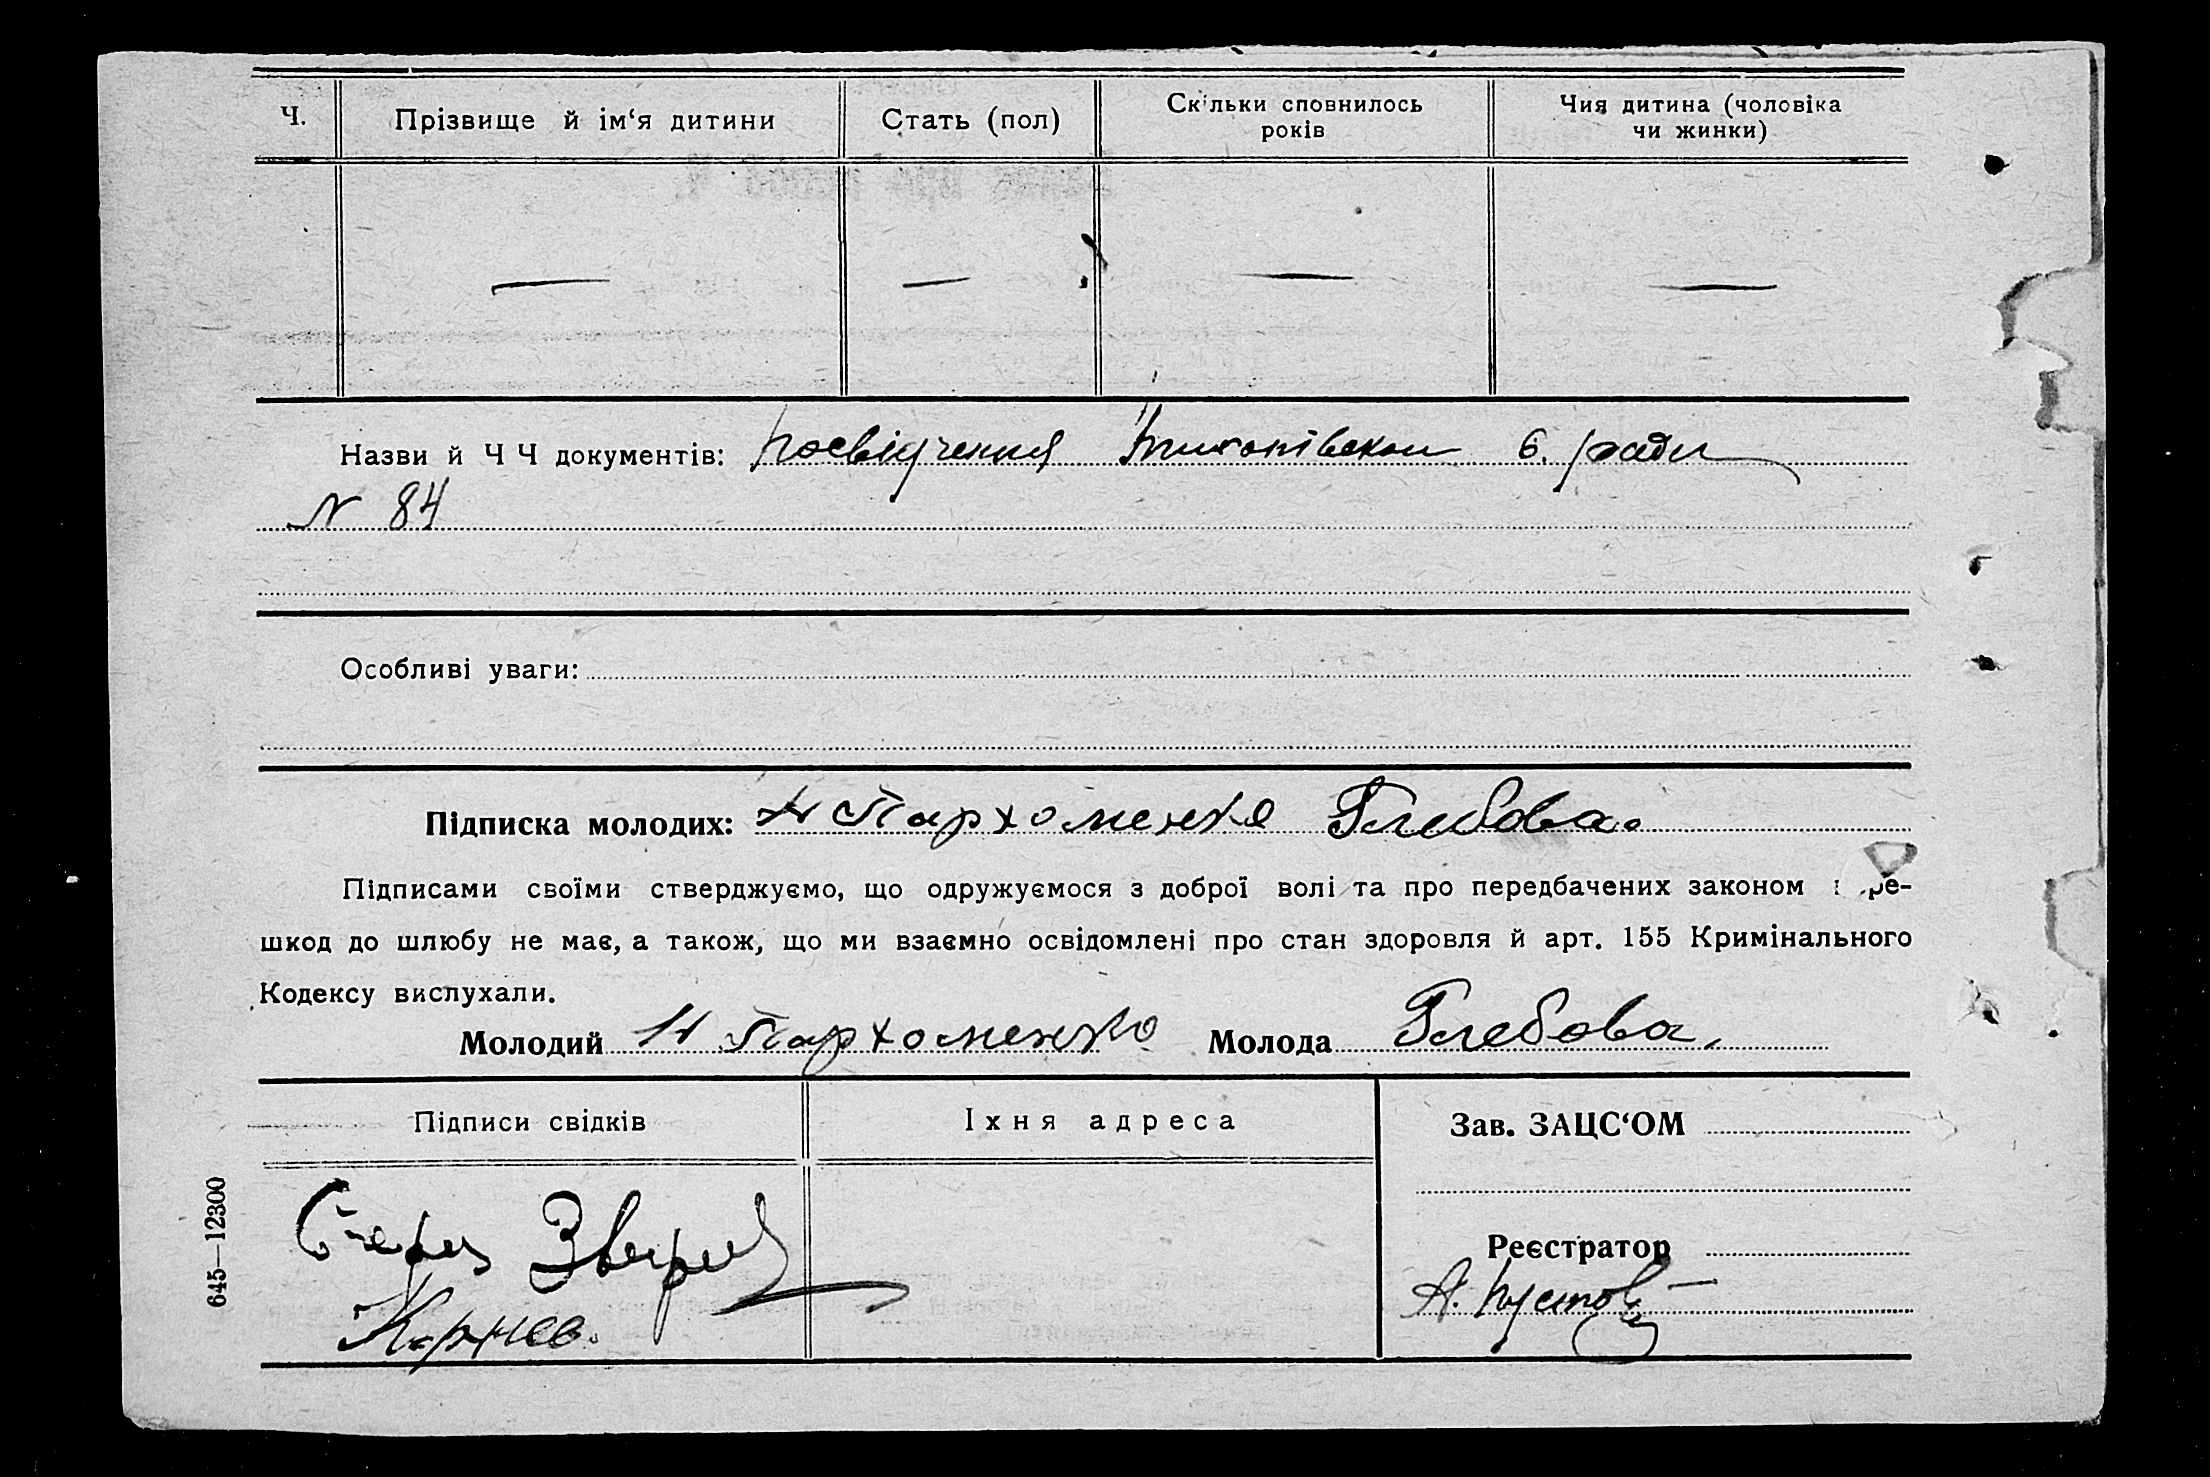 Ч. Прізвище й ім‘я дитини Стать (пол) Скільки сповнилось років Чия дитина (чоловіка чи жинки)
— — — —
Назви й Ч Ч документів: посвідчення б. ради
N 84
Особливі уваги:
Підписка молодих: Пархоменко Глебова.
Підписами своїми стверджуємо, що одружуємося з доброї волі та про передбачених законом пере-
шкод до шлюбу не має, а також, що ми взаємно освідомлені про стан здоровля й арт. 155 Кримінального
Кодексу вислухали.
Молодий Пархоменко Молода Глебова.
Підписи свідків Іхня адреса Зав. ЗАЦС‘ОМ
645—12300
Реєстратор
Зверев
А.
Корнев.